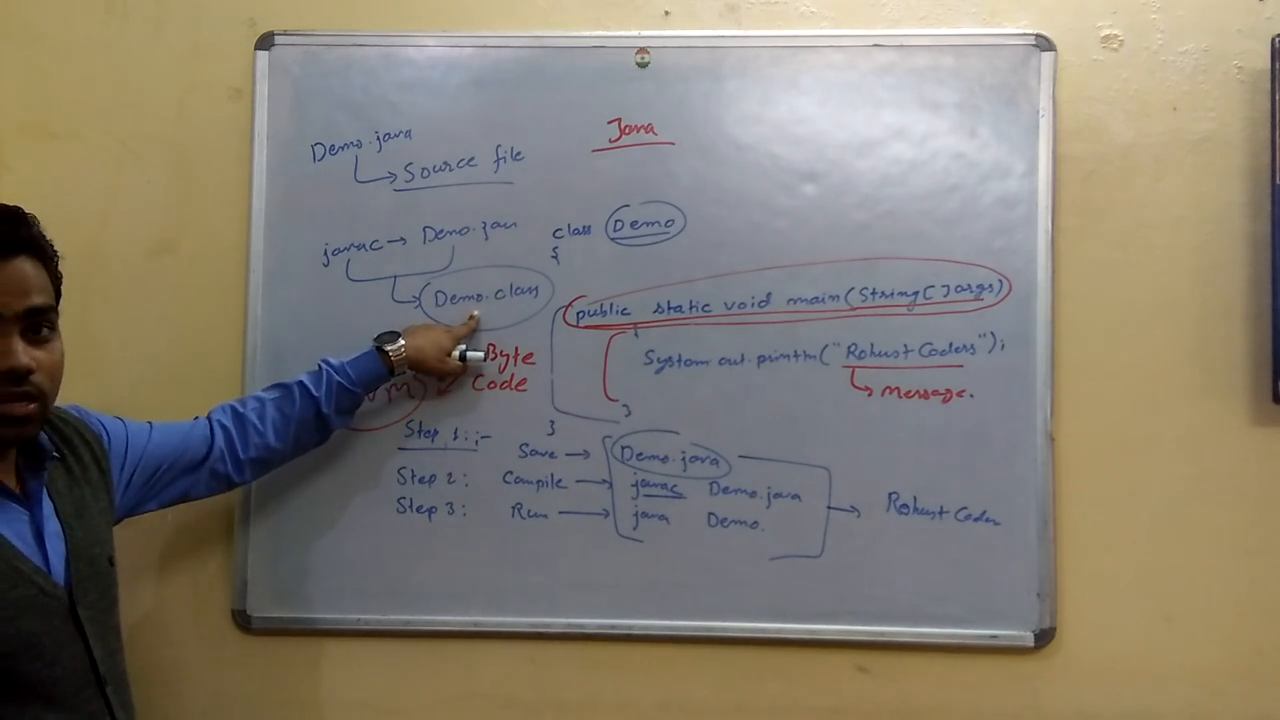 Java
Demo.java
Source file
javac → Demo.java
Demo.class
Byte
Code
class Demo
{
public static void main(String[]args)
{
System.out.println("Robust Coders");
message.
}
}
Step 1:;-
Save → Demo.java
Step 2: Compile → javac Demo.java
Step 3: Run → java Demo.
Robust Coder